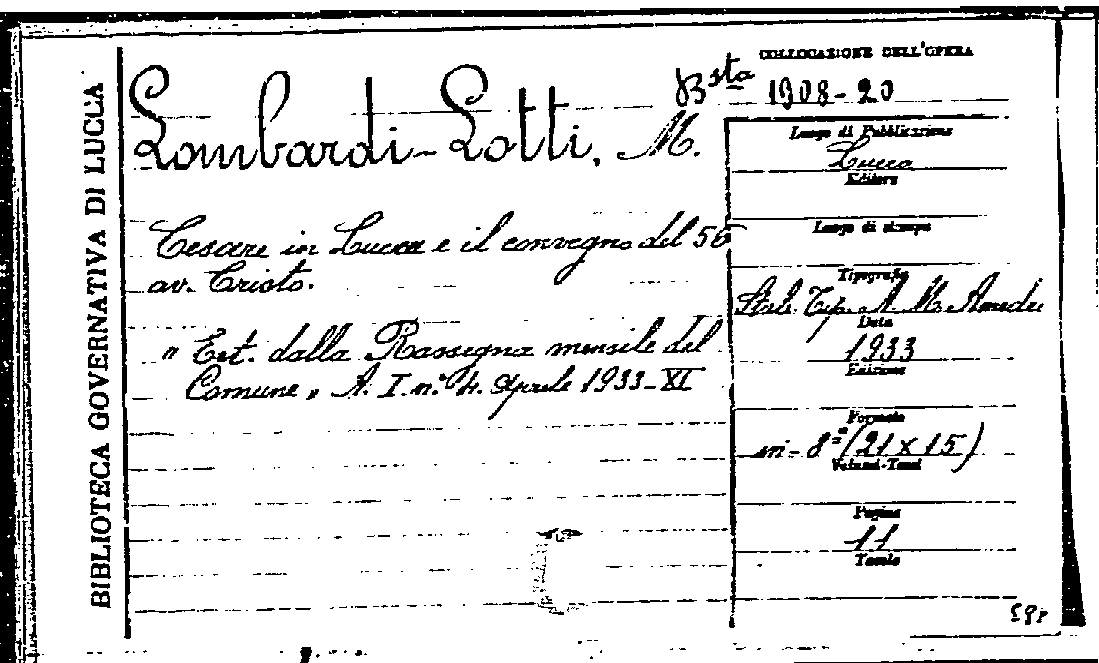 BIBLIOTECA GOVERNATIVA DI LUCCA
COLLOCAZIONE DELL'OPERA
Bsta 1908-20
Lombardi-Lotti, M.
Cesare in Lucca e il convegno del 56
av. Cristo.
" Est. dalla Rassegna mensile del
Comune " A. I. n.° 4. Aprile 1933-XI
Luogo di Pubblicazione
Lucca
Editore
Luogo di stampa
Tipografia
Stab. Tip. A. M. Amedei
Data
1933
Edizione
Formato
in-8° (21 x 15)
Volumi-Tomi
Pagine
11
Tavole